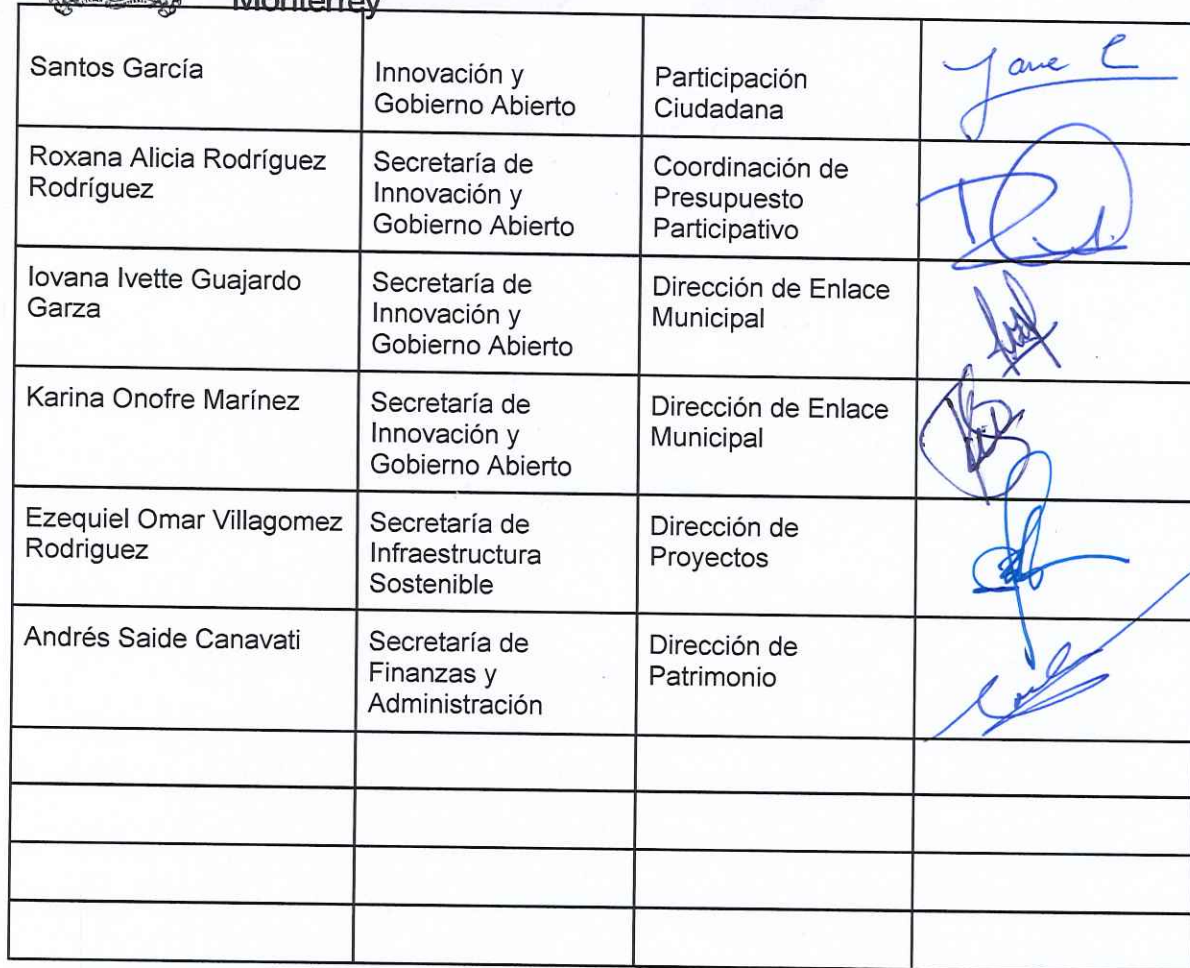 Monterrey
Santos García
Innovación y
Gobierno Abierto
Participación
Ciudadana
Roxana Alicia Rodríguez
Rodríguez
Secretaría de
Innovación y
Gobierno Abierto
Coordinación de
Presupuesto
Participativo
Iovana Ivette Guajardo
Garza
Secretaría de
Innovación y
Gobierno Abierto
Dirección de Enlace
Municipal
Karina Onofre Marínez
Secretaría de
Innovación y
Gobierno Abierto
Dirección de Enlace
Municipal
Ezequiel Omar Villagomez
Rodriguez
Secretaría de
Infraestructura
Sostenible
Dirección de
Proyectos
Andrés Saide Canavati
Secretaría de
Finanzas y
Administración
Dirección de
Patrimonio